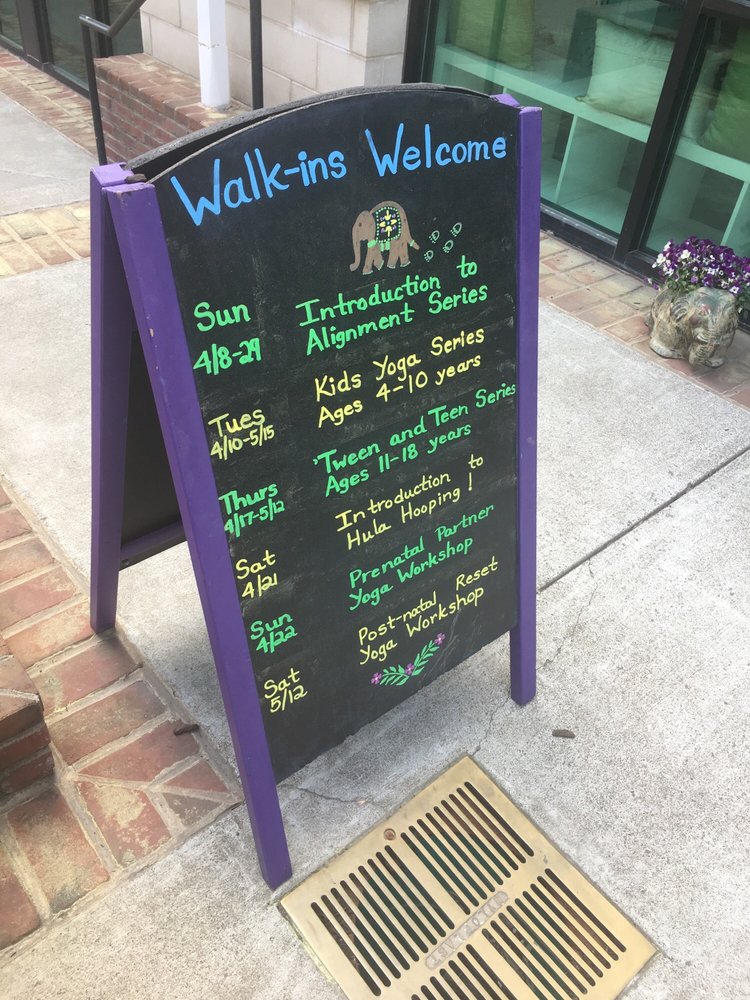 Walk-ins Welcome
Sun
4/8-29
Introduction to
Alignment Series
Tues
4/10-5/15
Kids Yoga Series
Ages 4-10 years
Thurs
4/17-5/12
'Tween and Teen Series
Ages 11-18 years
Sat
4/21
Introduction to
Hula Hooping!
Sun
4/22
Prenatal Partner
Yoga Workshop
Sat
5/12
Post-natal Reset
Yoga Workshop